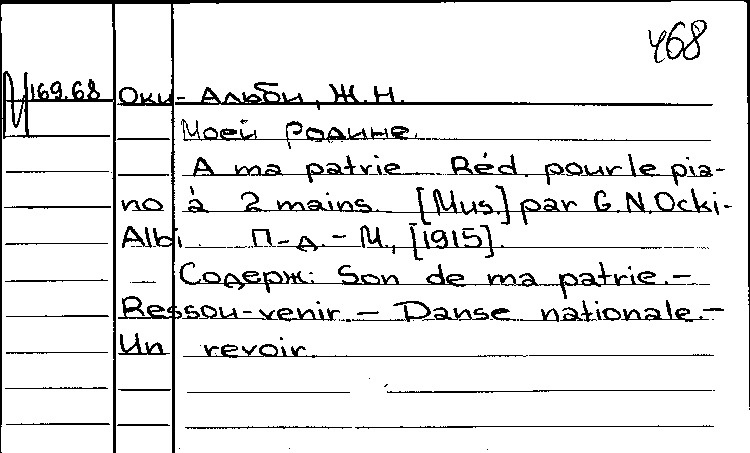 468
169.68 Оки-Альби, Ж.Н.
Моей родине.
A ma patrie Réd. pour le pia-
no à 2 mains. [Mus.] par G.N.Ocki-
Albi. П-д.-М., [1915].
Содерж: Son de ma patrie.-
Ressou-venir.- Danse nationale.-
Un revoir.